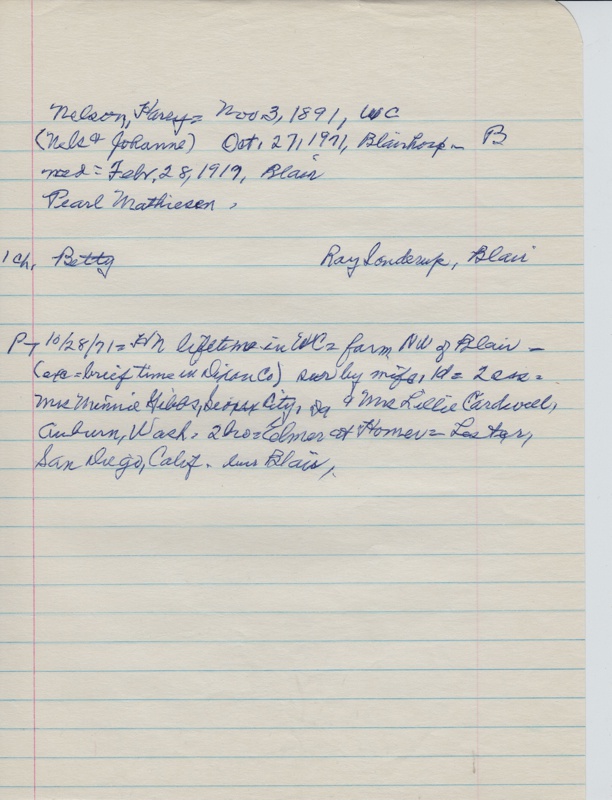 Nelson, Harry = Nov 3, 1891, WC
(Nels & Johanne) Oct. 27, 1971, Blair hosp - B
med = Febr. 28, 1919, Blair
Pearl Mathiesen,
1 ch, Betty Ray Sonderup, Blair
P-T 10/28/71 = HN lifetime in WC = farm NW of Blair -
(exc = brief time in Dixon Co) sur by wife, 1d = 2 sis =
Mrs Minnie Gibbs, Sioux City, Ia & Mrs Lillie Cardwell,
Auburn, Wash. 2 bro = Elmer at Homer = Lester,
San Diego, Calif. Blair,